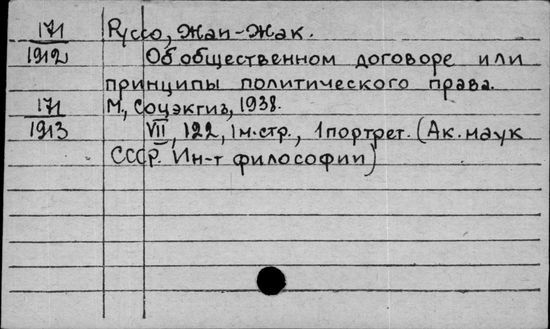 171 Руссо, Жан-Жак.
1912 Об общественном договоре или
принципы политического права.
171 М., Соцэкгиз, 1938.
1913 VII, 122, 1 н.стр., 1 портрет. (Ак. наук
СССР. Ин-т философии)